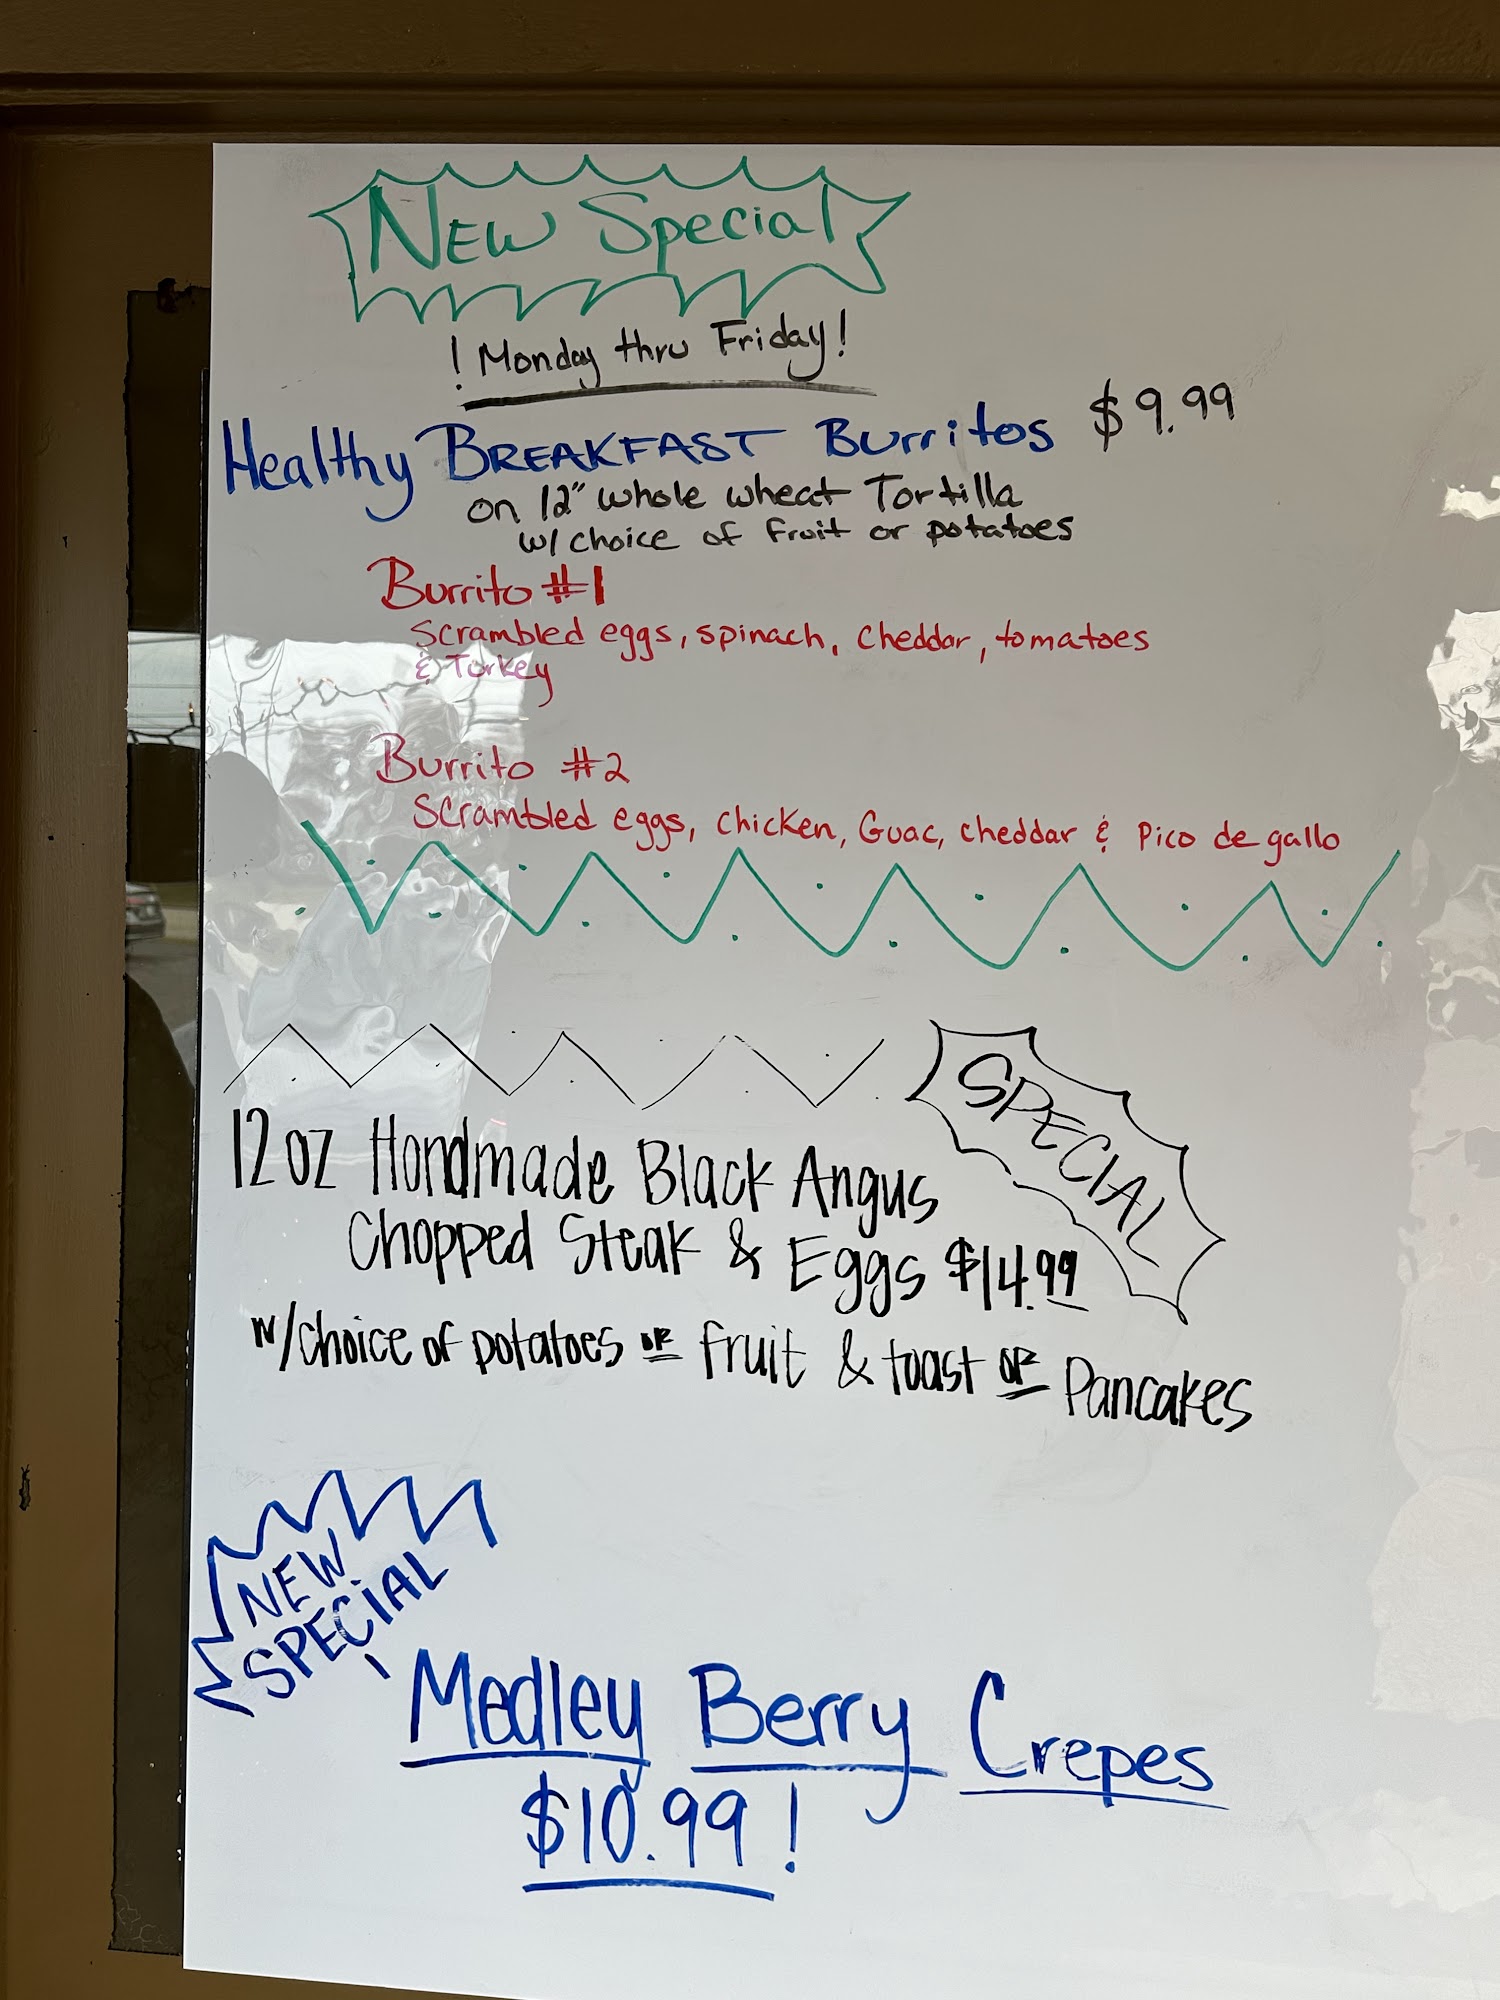 NEW Special
! Monday thru Friday!
Healthy BREAKFAST Burritos $9.99
on 12" whole wheat Tortilla
w/ choice of fruit or potatoes
Burrito #1
Scrambled eggs, spinach, cheddar, tomatoes
& Turkey
Burrito #2
Scrambled eggs, chicken, Guac, cheddar & Pico de gallo
SPECIAL
12oz Handmade Black Angus
Chopped Steak & Eggs $14.99
w/choice of potatoes OR fruit & toast OR Pancakes
NEW
SPECiAL
! Medley Berry Crepes
$10.99!